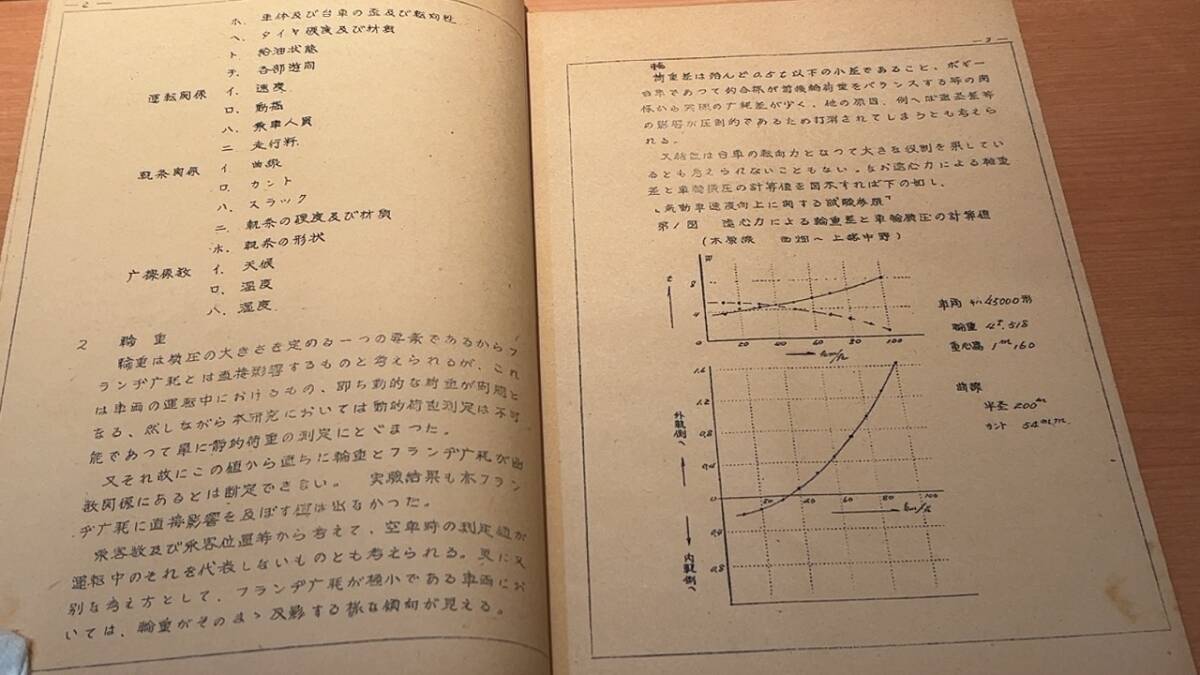 — 2 —
ホ. 車体及び台車の歪及び転向性
ヘ. タイヤ硬度及び材質
ト. 給油状態
チ. 各部遊間
運転関係 イ. 速度
ロ. 動揺
ハ. 乗車人員
ニ. 走行粁
軌条関係 イ. 曲線
ロ. カント
ハ. スラック
ニ. 軌条の硬度及び材質
ホ. 軌条の形状
广擦係数 イ. 天候
ロ. 温度
ハ. 湿度
2 輪重
輪重は横圧の大きさを定める一つの要素であるからフ
ランヂ广耗とは直接影響するものと考えられるが、これ
は車両の運転中におけるもの、即ち動的な荷重が問題と
なる、然しながら本研究においては動的荷重測定は不可
能であつて単に静的荷重の測定にとどまつた。
又それ故にこの値から直ちに輪重とフランヂ广耗が函
数関係にあるとは断定できない。 実験結果も亦フラン
ヂ广耗に直接影響を及ぼす値は出なかつた。
乗客数及び乗客位置等から考えて、空車時の測定値が
運転中のそれを代表しないものとも考えられる。更に又
別な考え方として、フランヂ广耗が極小である車両にお
いては、輪重がそのまゝ反影する様な傾向が見える。
— 3 —
輪
荷重差は殆んど0.5t以下の小差であること、ボギー
台車であつて釣合梁が前後輪荷重をバランスする等の関
係から実際の广耗差が少く、他の原因、例へば直径差等
の影響が圧倒的であるため打消されてしまうとも考えら
れる。
又軸重は台車の転向力となつて大きな役割を果してい
るとも考えられないこともない。なお遠心力による輪重
差と車輪横圧の計算値を図示すれば下の如し、
「気動車速度向上に関する試験参照」
第1図 遠心力による輪重差と車輪横圧の計算値
(木原線 西畑へ上総中野)
t
8
4
0 20 40 60 80 100
km/h
車両 キハ45000形
輪重 4T.518
重心高 1m.160
1.6
1.2
0.8
0.4
0
0.4
0.8
20 40 60 80 100
km/h
外軌側へ
内軌側へ
曲線
半径 200m
カント 54m/m